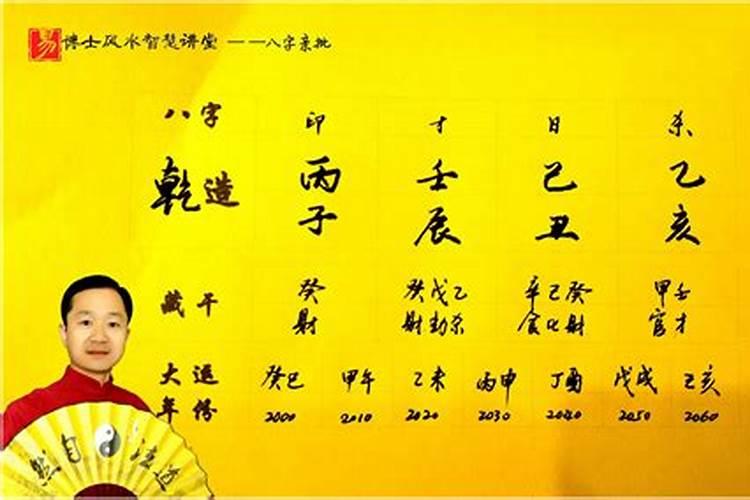 易 博士风水智慧讲堂 ——八字亲批
八字 印 才 日 杀
乾造 丙 壬 己 乙
子 辰 丑 亥
藏干 癸 癸戊乙 辛己癸 甲壬
财 财劫杀 食比财 官才
大运 癸巳 甲午 乙未 丙申 丁酉 戊戌 亥
年份 2000 2010 2020 2030 2040 2050 2060
然自法道